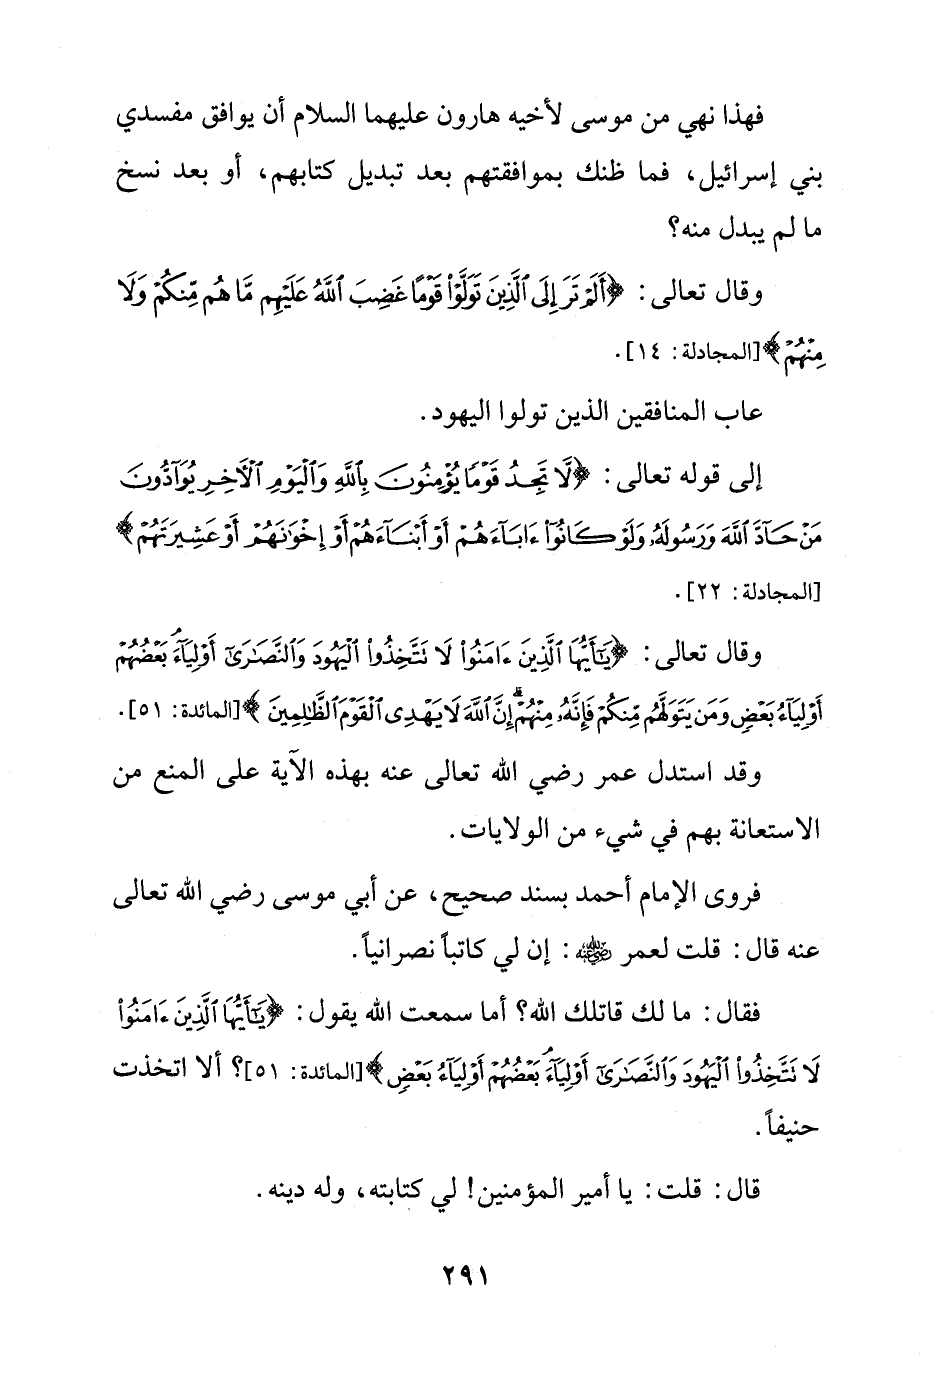 فهذا نهي من موسى لأخيه هارون عليهما السلام أن يوافق مفسدي
بني إسرائيل، فما ظنك بموافقتهم بعد تبديل كتابهم، أو بعد نسخ
ما لم يبدل منه؟
وقال تعالى: ﴿أَلَمْ تَرَ إِلَى ٱلَّذِينَ تَوَلَّوْا۟ قَوْمًا غَضِبَ ٱللَّهُ عَلَيْهِم مَّا هُم مِّنكُمْ وَلَا
مِنْهُمْ﴾ [المجادلة: ١٤].
عاب المنافقين الذين تولوا اليهود.
إلى قوله تعالى: ﴿لَّا تَجِدُ قَوْمًا يُؤْمِنُونَ بِٱللَّهِ وَٱلْيَوْمِ ٱلْـَٔاخِرِ يُوَآدُّونَ
مَنْ حَآدَّ ٱللَّهَ وَرَسُولَهُۥ وَلَوْ كَانُوٓا۟ ءَابَآءَهُمْ أَوْ أَبْنَآءَهُمْ أَوْ إِخْوَٰنَهُمْ أَوْ عَشِيرَتَهُمْ﴾
[المجادلة: ٢٢].
وقال تعالى: ﴿يَـٰٓأَيُّهَا ٱلَّذِينَ ءَامَنُوا۟ لَا تَتَّخِذُوا۟ ٱلْيَهُودَ وَٱلنَّصَـٰرَىٰٓ أَوْلِيَآءَ ۘ بَعْضُهُمْ
أَوْلِيَآءُ بَعْضٍ وَمَن يَتَوَلَّهُم مِّنكُمْ فَإِنَّهُۥ مِنْهُمْ ۗ إِنَّ ٱللَّهَ لَا يَهْدِى ٱلْقَوْمَ ٱلظَّـٰلِمِينَ﴾ [المائدة: ٥١].
وقد استدل عمر رضي الله تعالى عنه بهذه الآية على المنع من
الاستعانة بهم في شيء من الولايات.
فروى الإمام أحمد بسند صحيح، عن أبي موسى رضي الله تعالى
عنه قال: قلت لعمر رضي الله عنه: إن لي كاتباً نصرانياً.
فقال: ما لك قاتلك الله؟ أما سمعت الله يقول: ﴿يَـٰٓأَيُّهَا ٱلَّذِينَ ءَامَنُوا۟
لَا تَتَّخِذُوا۟ ٱلْيَهُودَ وَٱلنَّصَـٰرَىٰٓ أَوْلِيَآءَ ۘ بَعْضُهُمْ أَوْلِيَآءُ بَعْضٍ﴾ [المائدة: ٥١]؟ ألا اتخذت
حنيفاً.
قال: قلت: يا أمير المؤمنين! لي كتابته، وله دينه.
٢٩١